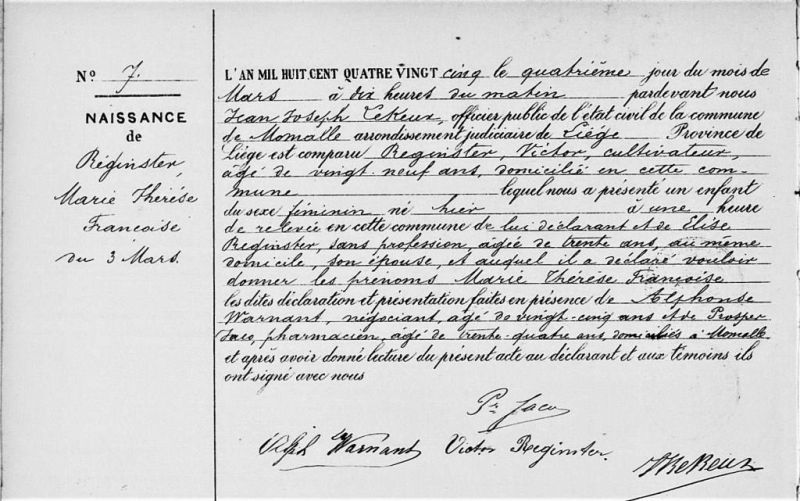 N° 7.
NAISSANCE
de
Réginster,
Marie Thérèse
Françoise
du 3 Mars.
L'AN MIL HUIT CENT QUATRE VINGT cinq le quatrième jour du mois de
Mars à dix heures du matin pardevant nous
Jean Joseph Lekeux, officier public de l'état civil de la commune
de Momalle arrondissement judiciaire de Liège Province de
Liège est comparu Reginster, Victor, cultivateur,
âgé de vingt-neuf ans, domicilié en cette com-
mune lequel nous a présenté un enfant
du sexe féminin né hier à une heure
de relevée en cette commune de lui déclarant et de Elise
Reginster, sans profession, âgée de trente ans, au même
domicile, son épouse, et auquel il a déclaré vouloir
donner les prénoms Marie Thérèse Françoise
les dites déclaration et présentation faites en présence de Alphonse
Warnant, négociant, âgé de vingt-cinq ans et de Prosper
Jaco, pharmacien, âgé de trente-quatre ans, domiciliés à Momalle
et après avoir donné lecture du présent acte au déclarant et aux témoins ils
ont signé avec nous
Pr Jaco
Alph Warnant Victor Reginster.
JLekeux